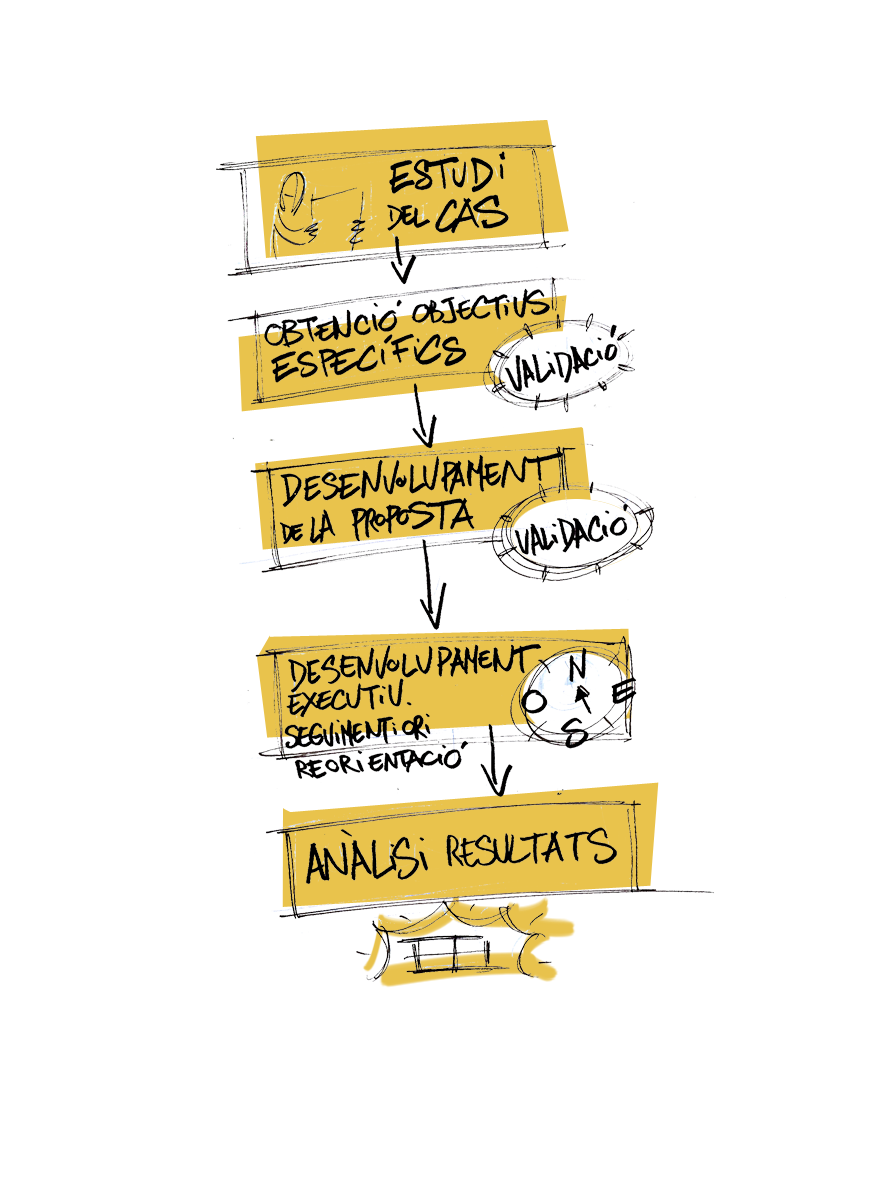 ESTUDI
DEL CAS
OBTENCIÓ OBJECTIUS
ESPECÍFICS
VALIDACIÓ
DESENVOLUPAMENT
DE LA PROPOSTA
VALIDACIÓ
DESENVOLUPAMENT
EXECUTIU.
SEGUIMENT i ORI
REORIENTACIÓ
N
O E
S
ANÀLISI RESULTATS